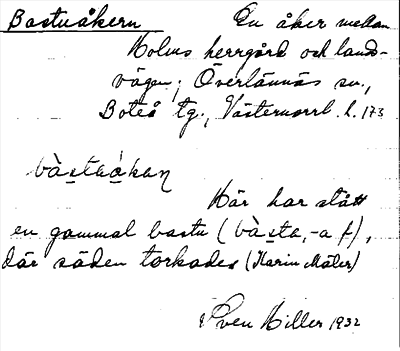 Bastuåkern En åker mellan
Holms herrgård och lands-
vägen; Överlännäs sn.,
Boteå tg., Västernorrl. l. 173
bàstuåkan
Här har stått
en gammal bastu (bàsta, -a f),
där säden torkades (Karin Mäler)
Sven Hiller 1932